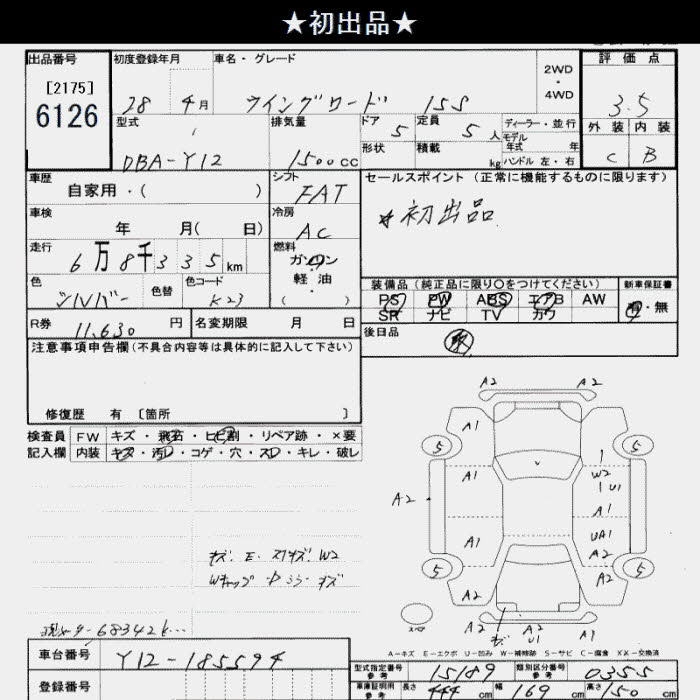 ★初出品★
出品番号
[2175]
6126
初度登録年月
28 4月
車名・グレード
ウイングロード 15S
2WD
・
4WD
評価点
3.5
外装 内装
C B
型式
DBA-Y12
排気量
1500CC
ドア 5
定員 5人
形状
積載 kg
ディーラー・並行
モデル年式 年
ハンドル 左・右
車歴
自家用・( )
シフト
FAT
セールスポイント(正常に機能するものに限ります)
☆初出品
車検
年 月( 日)
冷房
AC
走行
6万8千335km
燃料
ガソリン
軽油
( )
色
シルバー
色替
色コード
K23
装備品(純正品に限り○をつけてください)
PS PW ABS エアB AW
SR ナビ TV カワ
新車保証書
有・無
R券
11,630円
名変期限 月 日
後日品
注意事項申告欄(不具合内容等は具体的に記入して下さい)
修復歴 有 [箇所 ]
検査員記入欄
FW キズ・飛石・ヒビ割・リペア跡・×要
内装 キズ・汚レ・コゲ・穴・スレ・キレ・破レ
A2 A2
A1
5 5
A1 W2
U1
A2 A1
A1 UA1
A2
5 5
A2 A2
A2 A2
U1 A1
A=キズ E=エクボ U=凹み W=補修跡 S=サビ C=腐食 XX=交換済
車台番号
Y12-185594
登録番号
型式指定番号
参考
15189
類別区分番号
参考
0355
車庫証明用
参考
長さ 444cm
幅 169cm
高さ 150cm